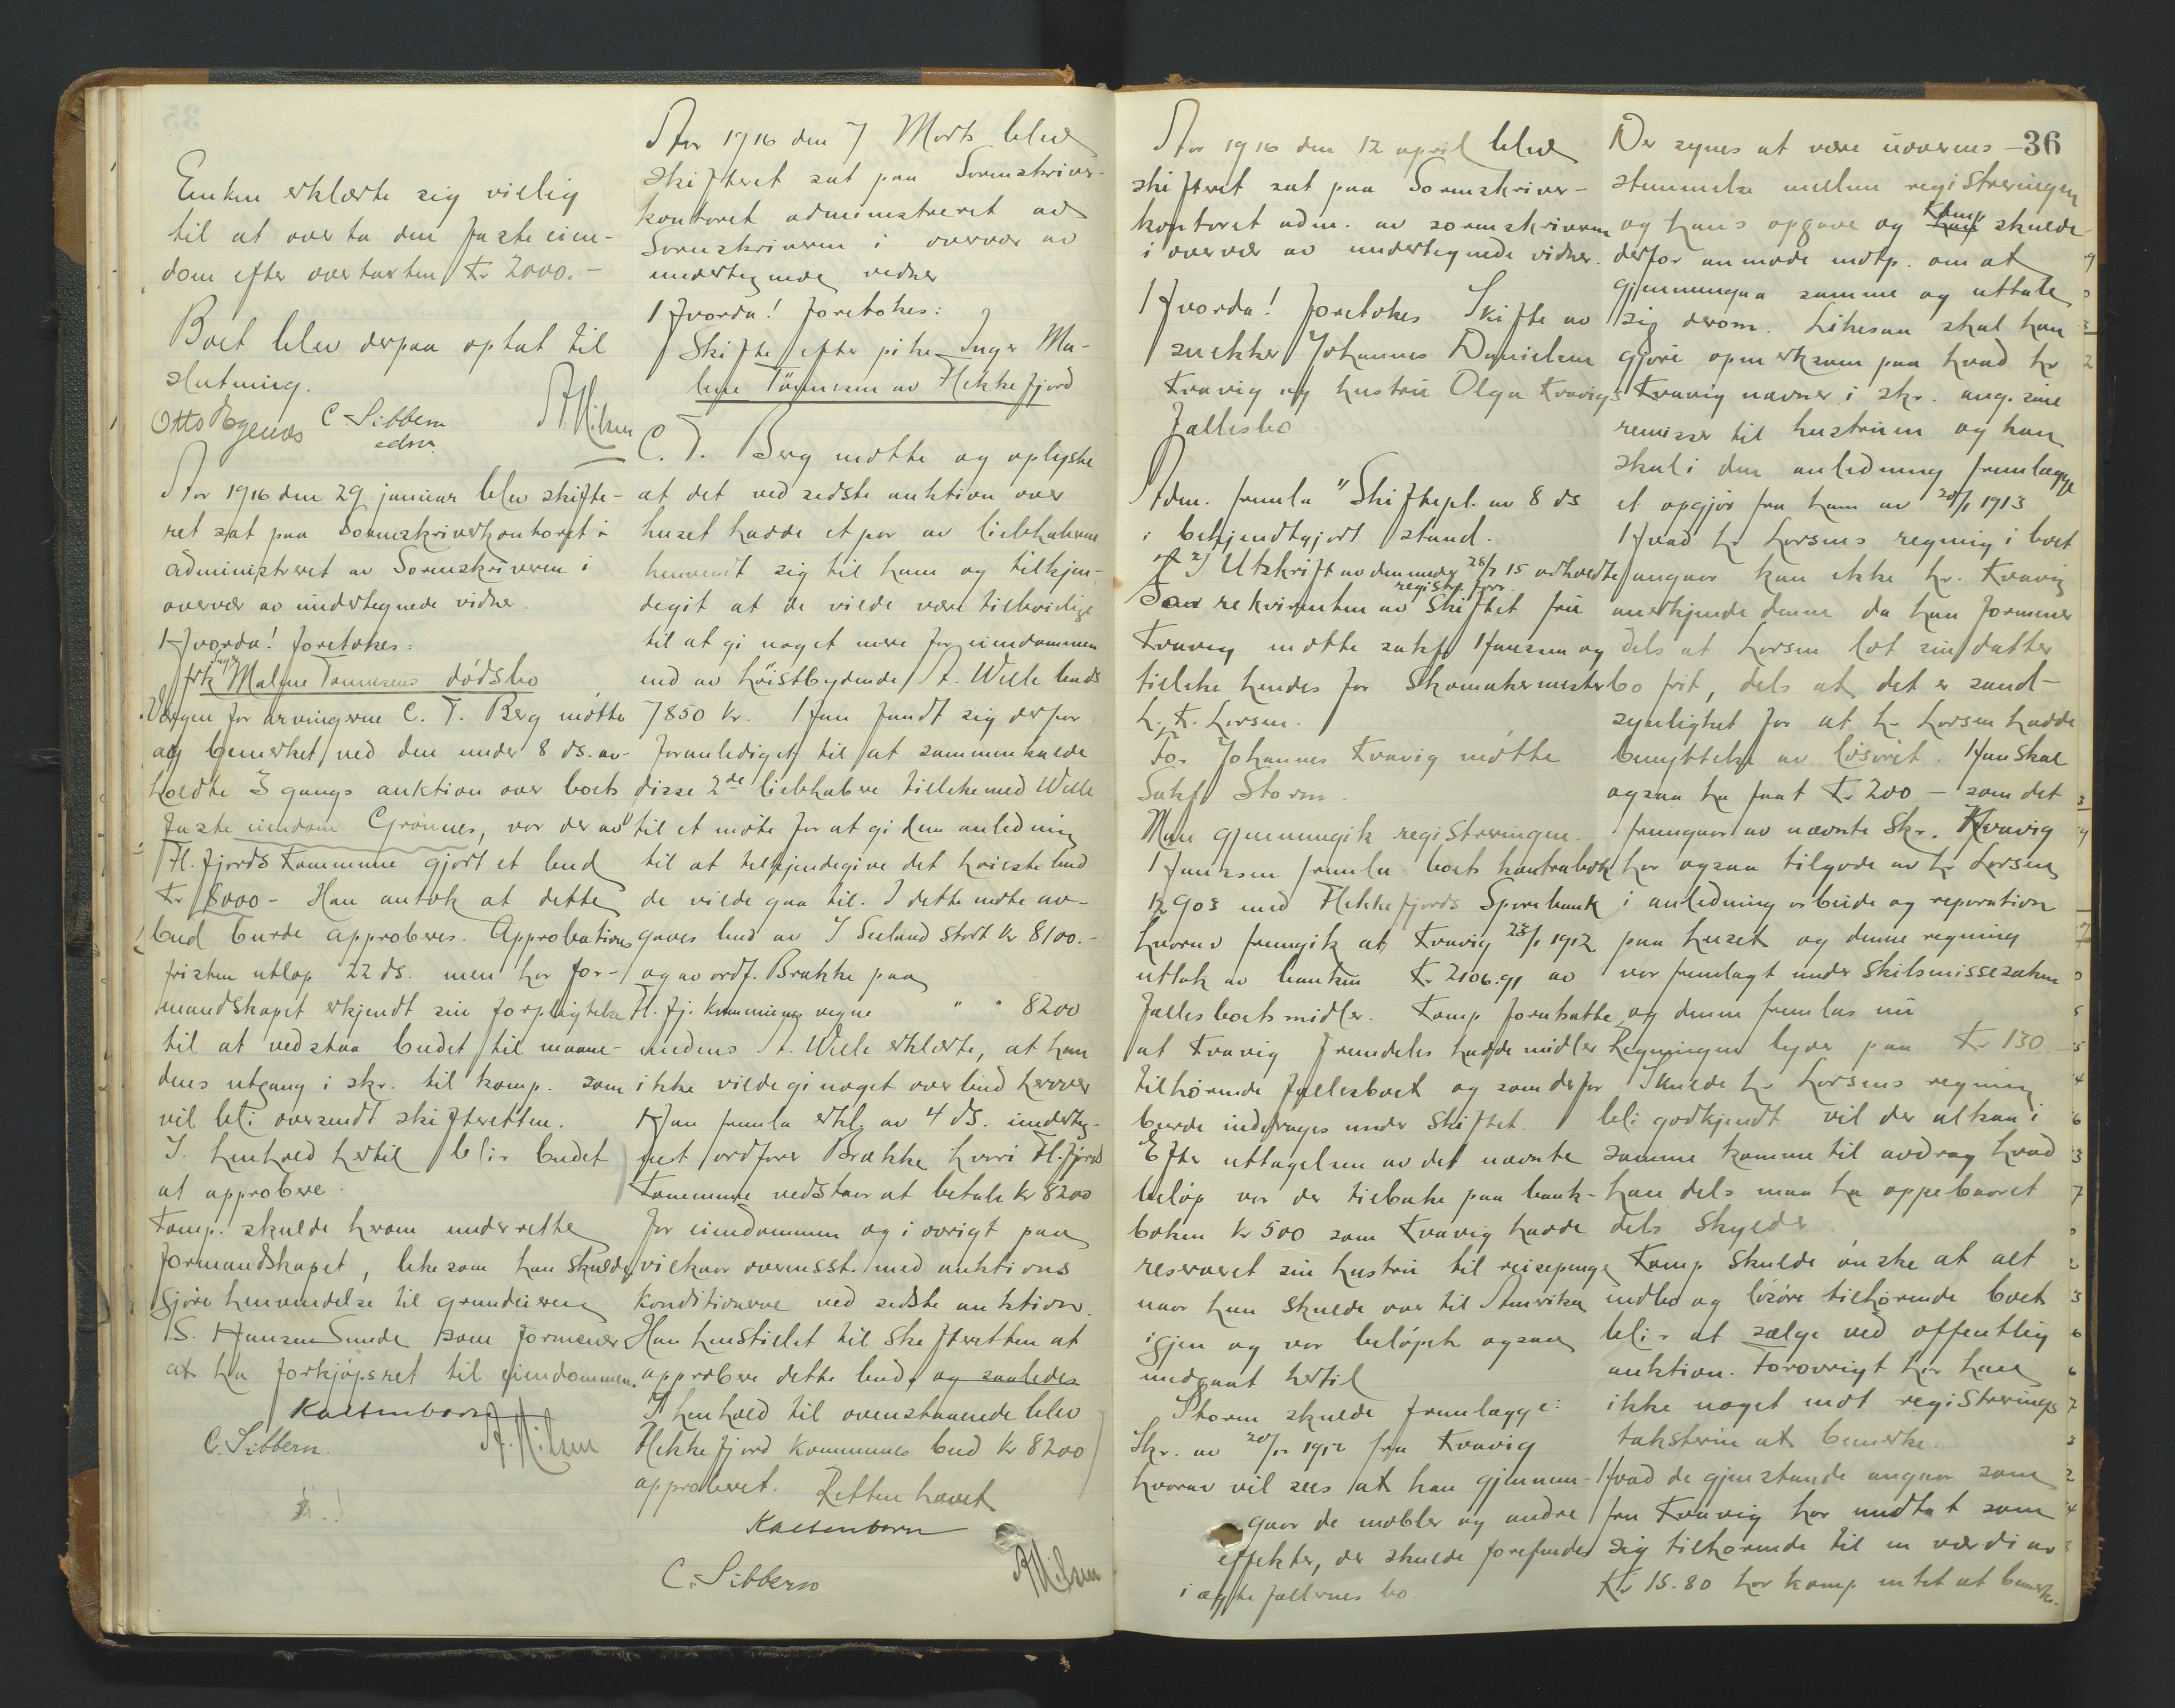 Enken erklærte sig villig
til at overta den faste eien-
dom efter overtaxten Kr 2000.-
Boet blev derpaa optat til
slutning.
Otto C Sibbern
A Nilsen
Aar 1916 den 29 januar blev skifte-
ret sat paa Sorenskriverkontoret i
administreret av Sorenskriveren i
overvær av undertegnede vidner.
Hvorda! foretokes:
frk Inger Maline Tønnesens dødsbo
Vergen for arvingerne C. T. Berg møtte
og bemerket ved den under 8 ds. av-
holdte 3 gangs auktion over boets
faste eiendom Grønnes, var der av
Fl. fjords Kommune gjort et bud
Kr 8000 - Han antok at dette
bud burde approberes. Approbations
fristen utløp 22 ds. men har for-
mandskapet erkjendt sin forpligtelse
til at vedstaa budet til maane-
dens utgang i skr. til komp. som
vil bli oversendt skifteretten.
I henhold hertil blir budet
at approbere.
Komp. skulde herom underrette
formandskapet, likesom han skulde
gjøre henvendelse til grundeieren
S. Hansen Sunde som formener
at ha forkjøpsret til eiendommen.
Kaltenborn
C. Sibbern. A. Nilsen
Aar 1916 den 7 Marts blev
skifteret sat paa Sorenskriver-
kontoret administreret av
Sorenskriveren i overvær av
undertegnede vidner
Hvorda! foretokes:
Skifte efter pike Inger Ma-
line Tønnesen av Flekkefjord
C. T. Berg møtte og oplyste
at det ved sidste auktion over
huset hadde et par av liebhaberne
henvendt sig til ham og tilkjen-
degit at de vilde være tilbøielige
til at gi noget mere for eiendommen
end av høistbydende A. Wiele buds
7850 kr. Han fandt sig derfor
foranlediget til at sammenkalde
disse 2de liebhabere tillikemed Wiele
til et møte for at gi dem anledning
til at tilkjendegive det høieste bud
de vilde gaa til. I dette møte av-
gaves bud av I Seland stort kr 8100.-
og av ordf. Brække paa
Fl. fj. Kommunes vegne " " 8200
medens A. Wiele erklærte, at han
ikke vilde gi noget overbud herover
Han fremla erkl. av 4 ds. underteg-
net ordfører Brække hvori Fl.fjords
Kommune vedstaar at betale kr 8200
for eiendommen og i øvrigt paa
vilkaar overensst. med auktions
konditionerne ved sidste auktion.
Han henstillet til skifteretten at
approbere dette bud, og saaledes
I henhold til ovenstaaende blev
Flekkefjord kommunes bud kr 8200
approberet. Retten hævet
Kaltenborn
C. Sibbern A Nilsen
36
Aar 1916 den 12 april blev
skifteret sat paa Sorenskriver-
kontoret adm. av sorenskriveren
i overvær av undertegnede vidner.
Hvorda! foretokes Skifte av
snekker Johannes Danielsen
Kvavig og hustru Olga Kvavigs
Fællesbo
Adm. fremla "Skiftepl. av 8 ds
i bekjendtgjort stand.
2) Utskrift av den under 28/2 15 avholdte
registr. forr.
Som rekvirenten av skiftet fru
Kvavig møtte sakf. Hanssen og
tillike hendes far Skomakermester
L. K. Larsen.
For Johannes Kvavig møtte
Sakf Storm.
Man gjennemgik registreringen.
Hanssen fremla boets kontrabok
12903 med Flekkefjords Sparebank
hvorav fremgik at Kvavig 28/1 1912
uttok av banken Kr 2106.91 av
fællesboets midler. Komp fortsatte
at Kvavig fremdeles hadde midler
tilhørende fællesboet og som derfor
burde inddrages under skiftet.
Efter uttagelsen av det nævnte
beløp var der tilbake paa bank-
boken kr 500 som Kvavig hadde
reserveret sin hustru til reisepenge
naar hun skulde over til Amerika
igjen og var beløpet ogsaa
medgaat hertil
Storm skulde fremlægge:
Skr. av 20/12 1912 fra Kvavig
hvorav vil sees at han gjennem-
gaar de møbler og andre
effekter, der skulde forefindes
i ægtefællernes bo.
Der synes at være uoverens-
stemmelse mellem registreringen
og hans opgave og komp skulde
derfor anmode motp. om at
gjennemgaa samme og uttale
sig derom. Likesaa skal han
gjøre opmerksom paa hvad hr
Kvavig nævner i skr. ang. sine
remisser til hustruen og han
skal i den anledning fremlægge
et opgjør fra ham av 20/1 1913
Hvad hr Larsens regning i boet
angaar kan ikke hr. Kvavig
anerkjende denne da han formener
dels at Larsen lot sin datter
bo frit, dels at det er sand-
synlighet for at hr Larsen hadde
benyttelse av løsøret. Han skal
ogsaa ha faat Kr 200 - som det
fremgaar av nævnte skr. Kvavig
har ogsaa tilgode av hr Larsen
i anledning arbeide og reparation
paa huset og denne regning
var fremlagt under skilsmissesaken
og denne fremlas nu
Regningen lyder paa Kr 130
Skulde hr Larsens regning
bli godkjendt vil der altsaa i
samme komme til avdrag hvad
han dels maa ha oppebaaret
dels skylder.
Komp skulde ønske at alt
indbo og løsøre tilhørende boet
blir at sælge ved offentlig
auktion. Forøvrigt har han
ikke noget mot registrerings
taksterne at bemerke.
Hvad de gjenstande angaar som
fru Kvavig har undtat som
sig tilhørende til en værdi av
Kr 15.80 har komp intet at bemerke.